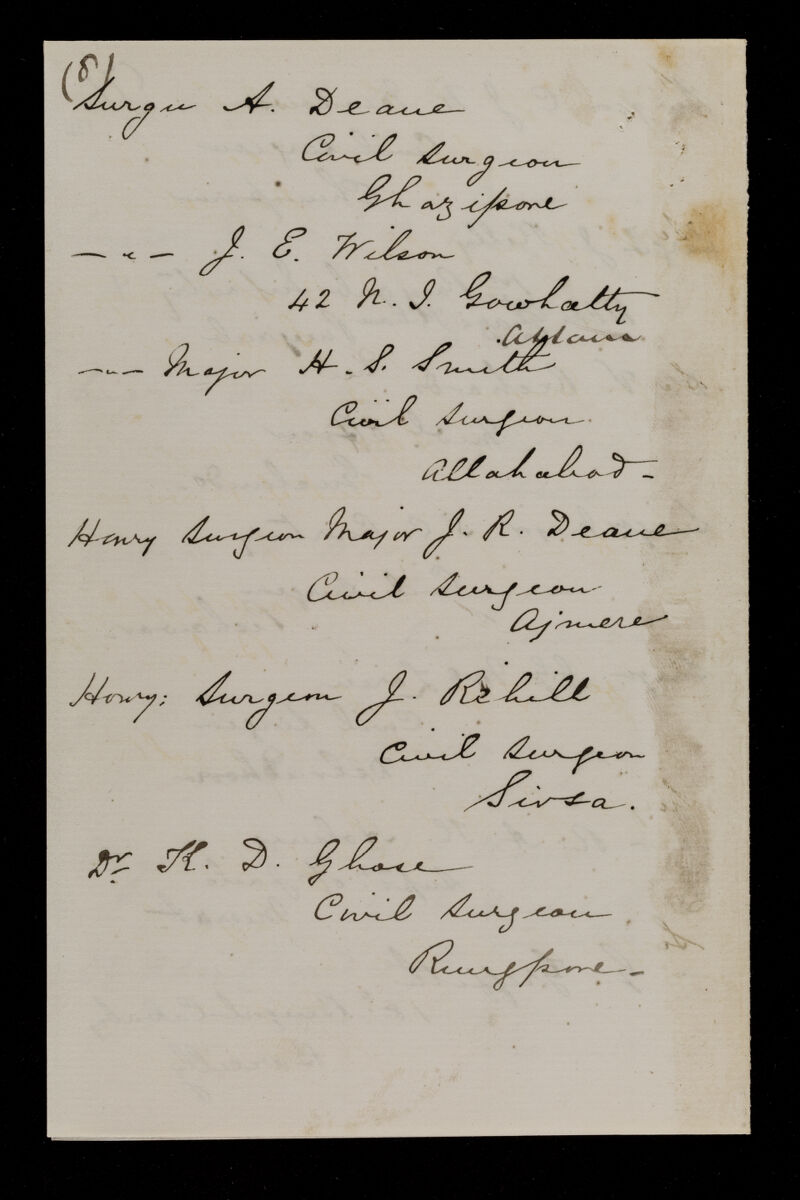 (8)
Surgn A. Deane
Civil Surgeon
Ghazipore
— " — J. E. Wilson
42 N. I. Gowhatty
Assam
— " — Major H. S. Smith
Civil Surgeon
Allahabad -
Honry Surgeon Major J. R. Deane
Civil Surgeon
Ajmere
Honry: Surgeon J. Rehill
Civil Surgeon
Sirsa.
Dr K. D. Ghose
Civil Surgeon
Rungpore -